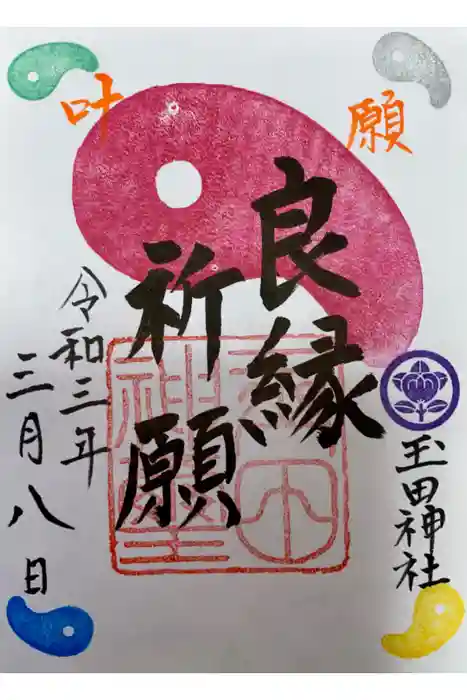 願
叶
良縁
祈願
玉田神社
令和三年
三月八日